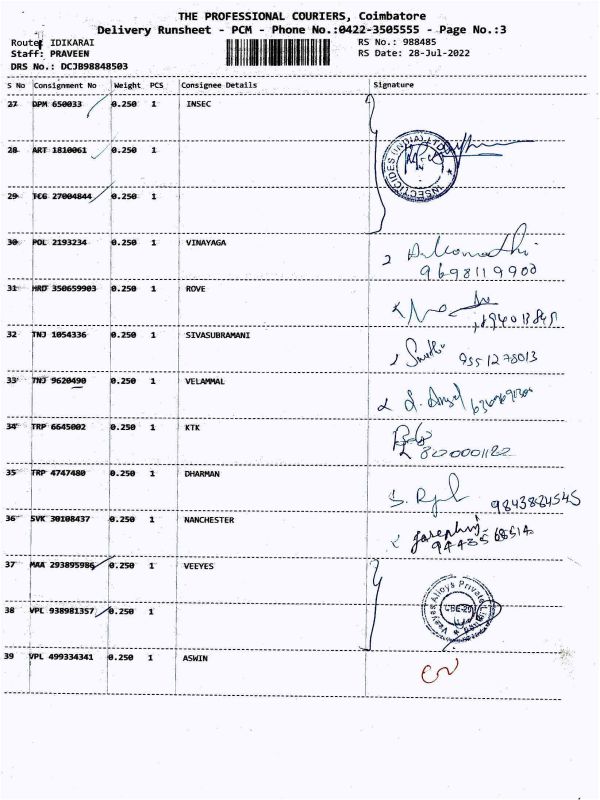 THE PROFESSIONAL COURIERS, Coimbatore
Delivery Runsheet - PCM - Phone No.:0422-3505555 - Page No.:3
Route: IDIKARAI RS No.: 988485
Staff: PRAVEEN RS Date: 28-Jul-2022
DRS No.: DCJB98848503
S No Consignment No Weight PCS Consignee Details Signature
27 DPM 650033 0.250 1 INSEC
28 ART 1810061 0.250 1
INSECTICIDES (INDIA) LTD
29 TCG 27004844 0.250 1
30 POL 2193234 0.250 1 VINAYAGA
9698119900
31 HRD 350659903 0.250 1 ROVE
32 TNJ 1054336 0.250 1 SIVASUBRAMANI
9551278013
33 TNJ 9620490 0.250 1 VELAMMAL
34 TRP 6645002 0.250 1 KTK
35 TRP 4747480 0.250 1 DHARMAN
36 SVK 30108437 0.250 1 NANCHESTER
37 MAA 293895986 0.250 1 VEEYES
38 VPL 938981357 0.250 1
39 VPL 499334341 0.250 1 ASWIN